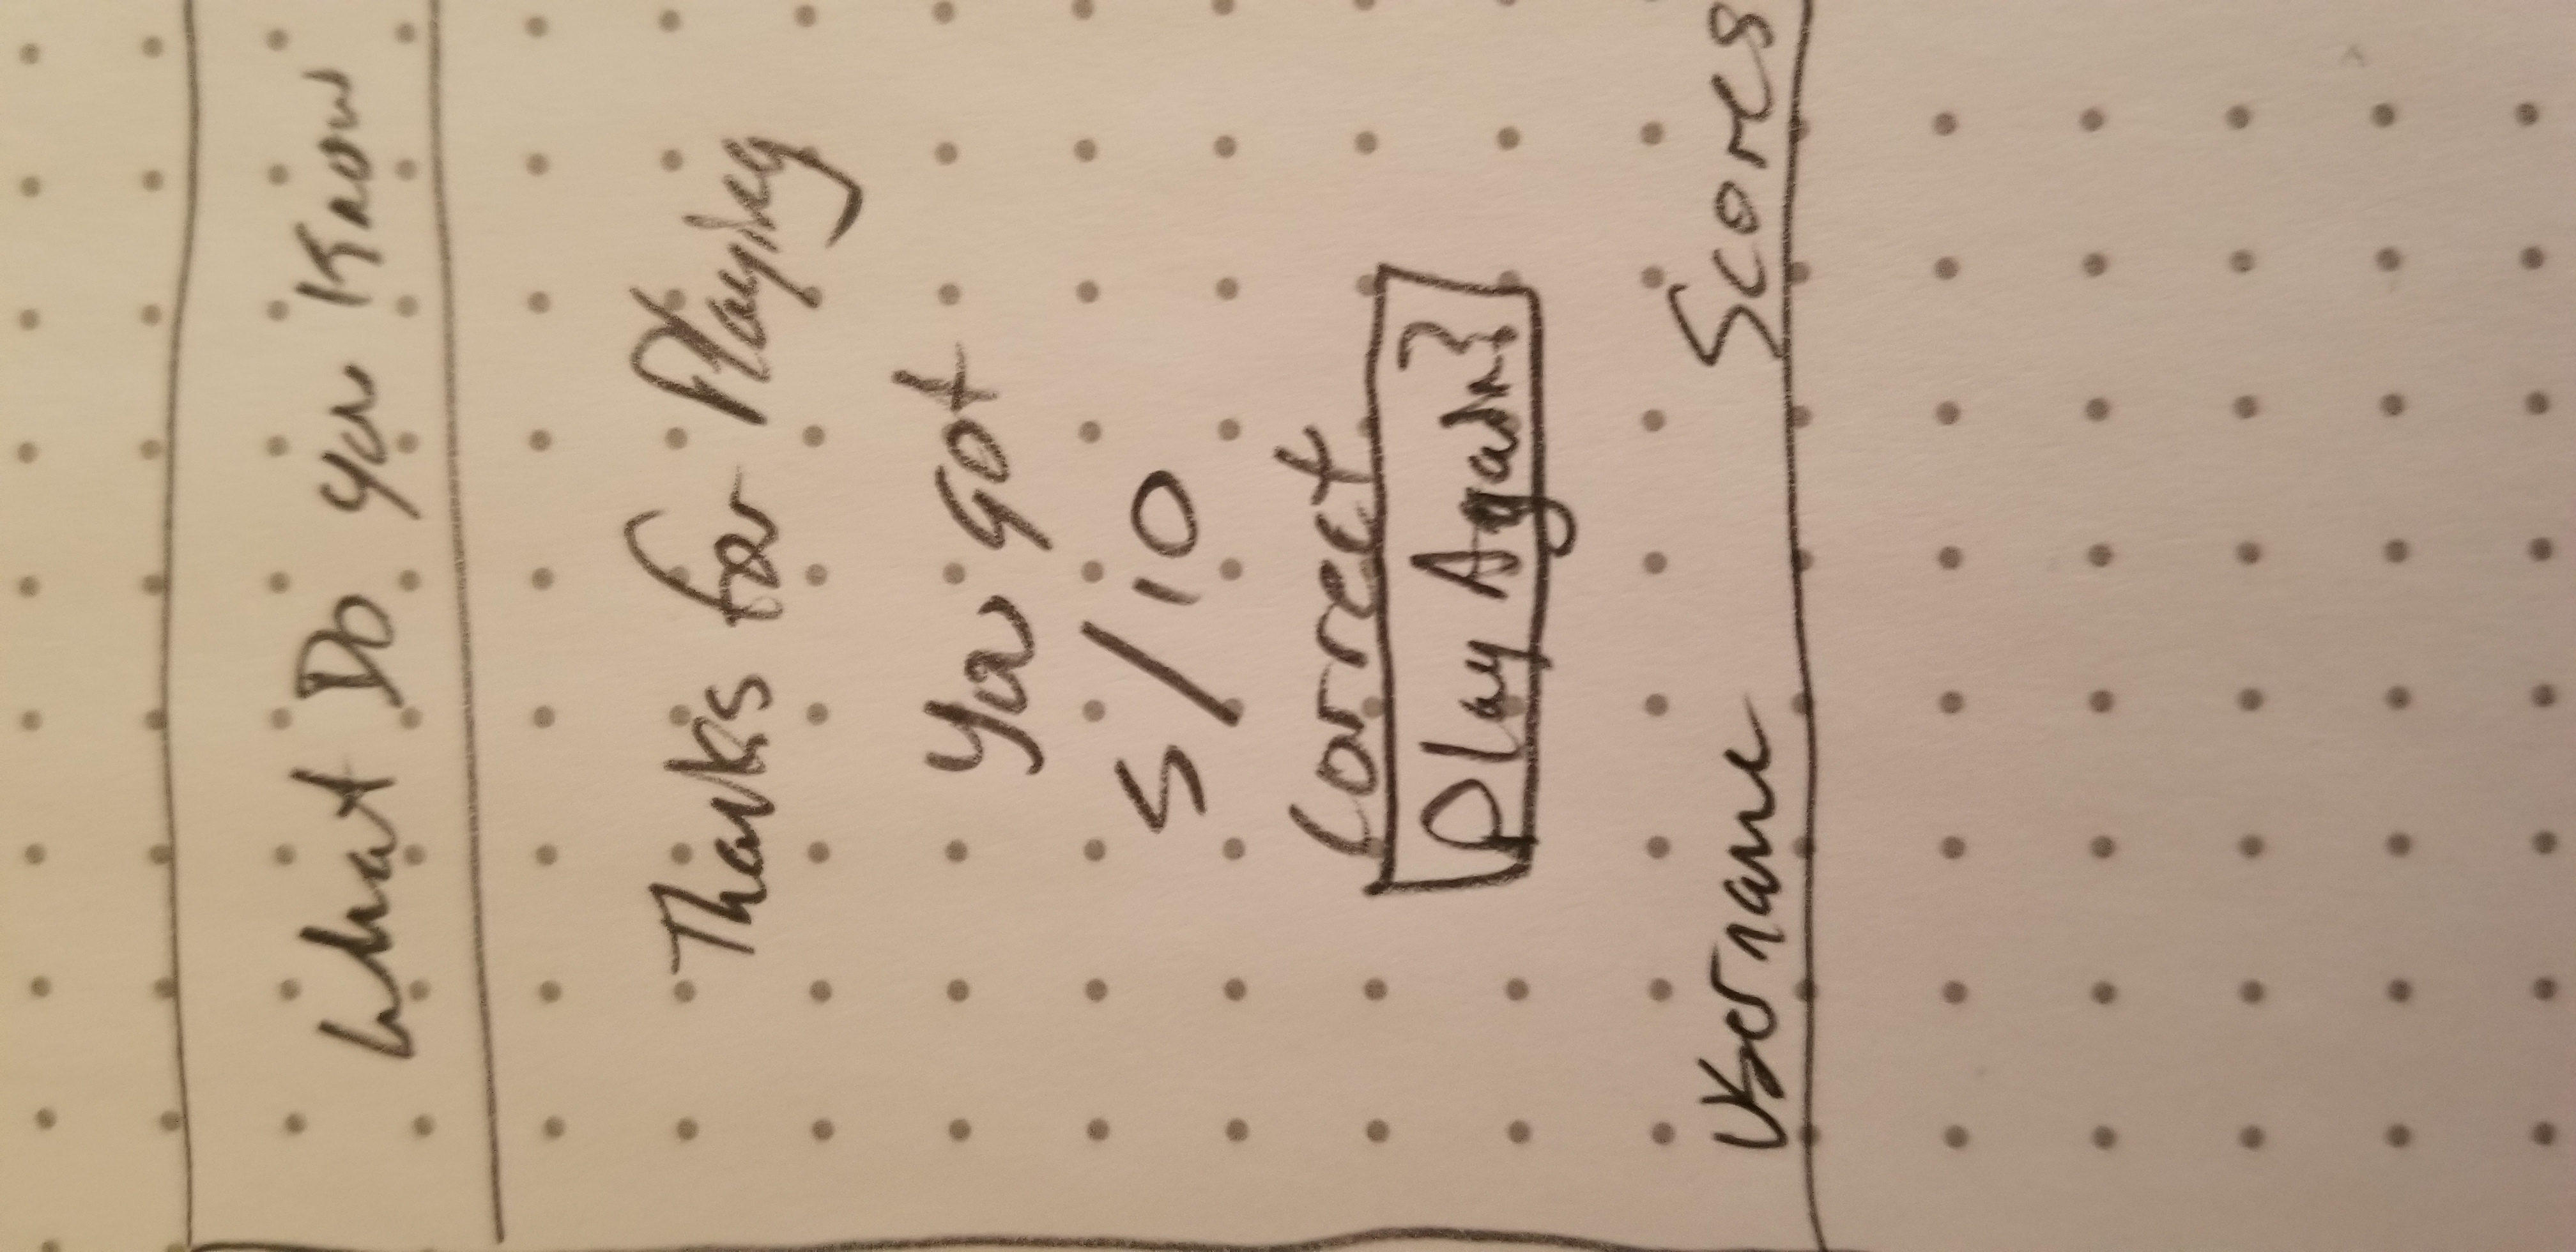 What Do you Know
Thanks for Playing
You got
5/10
Correct
Play Again?
Username Scores